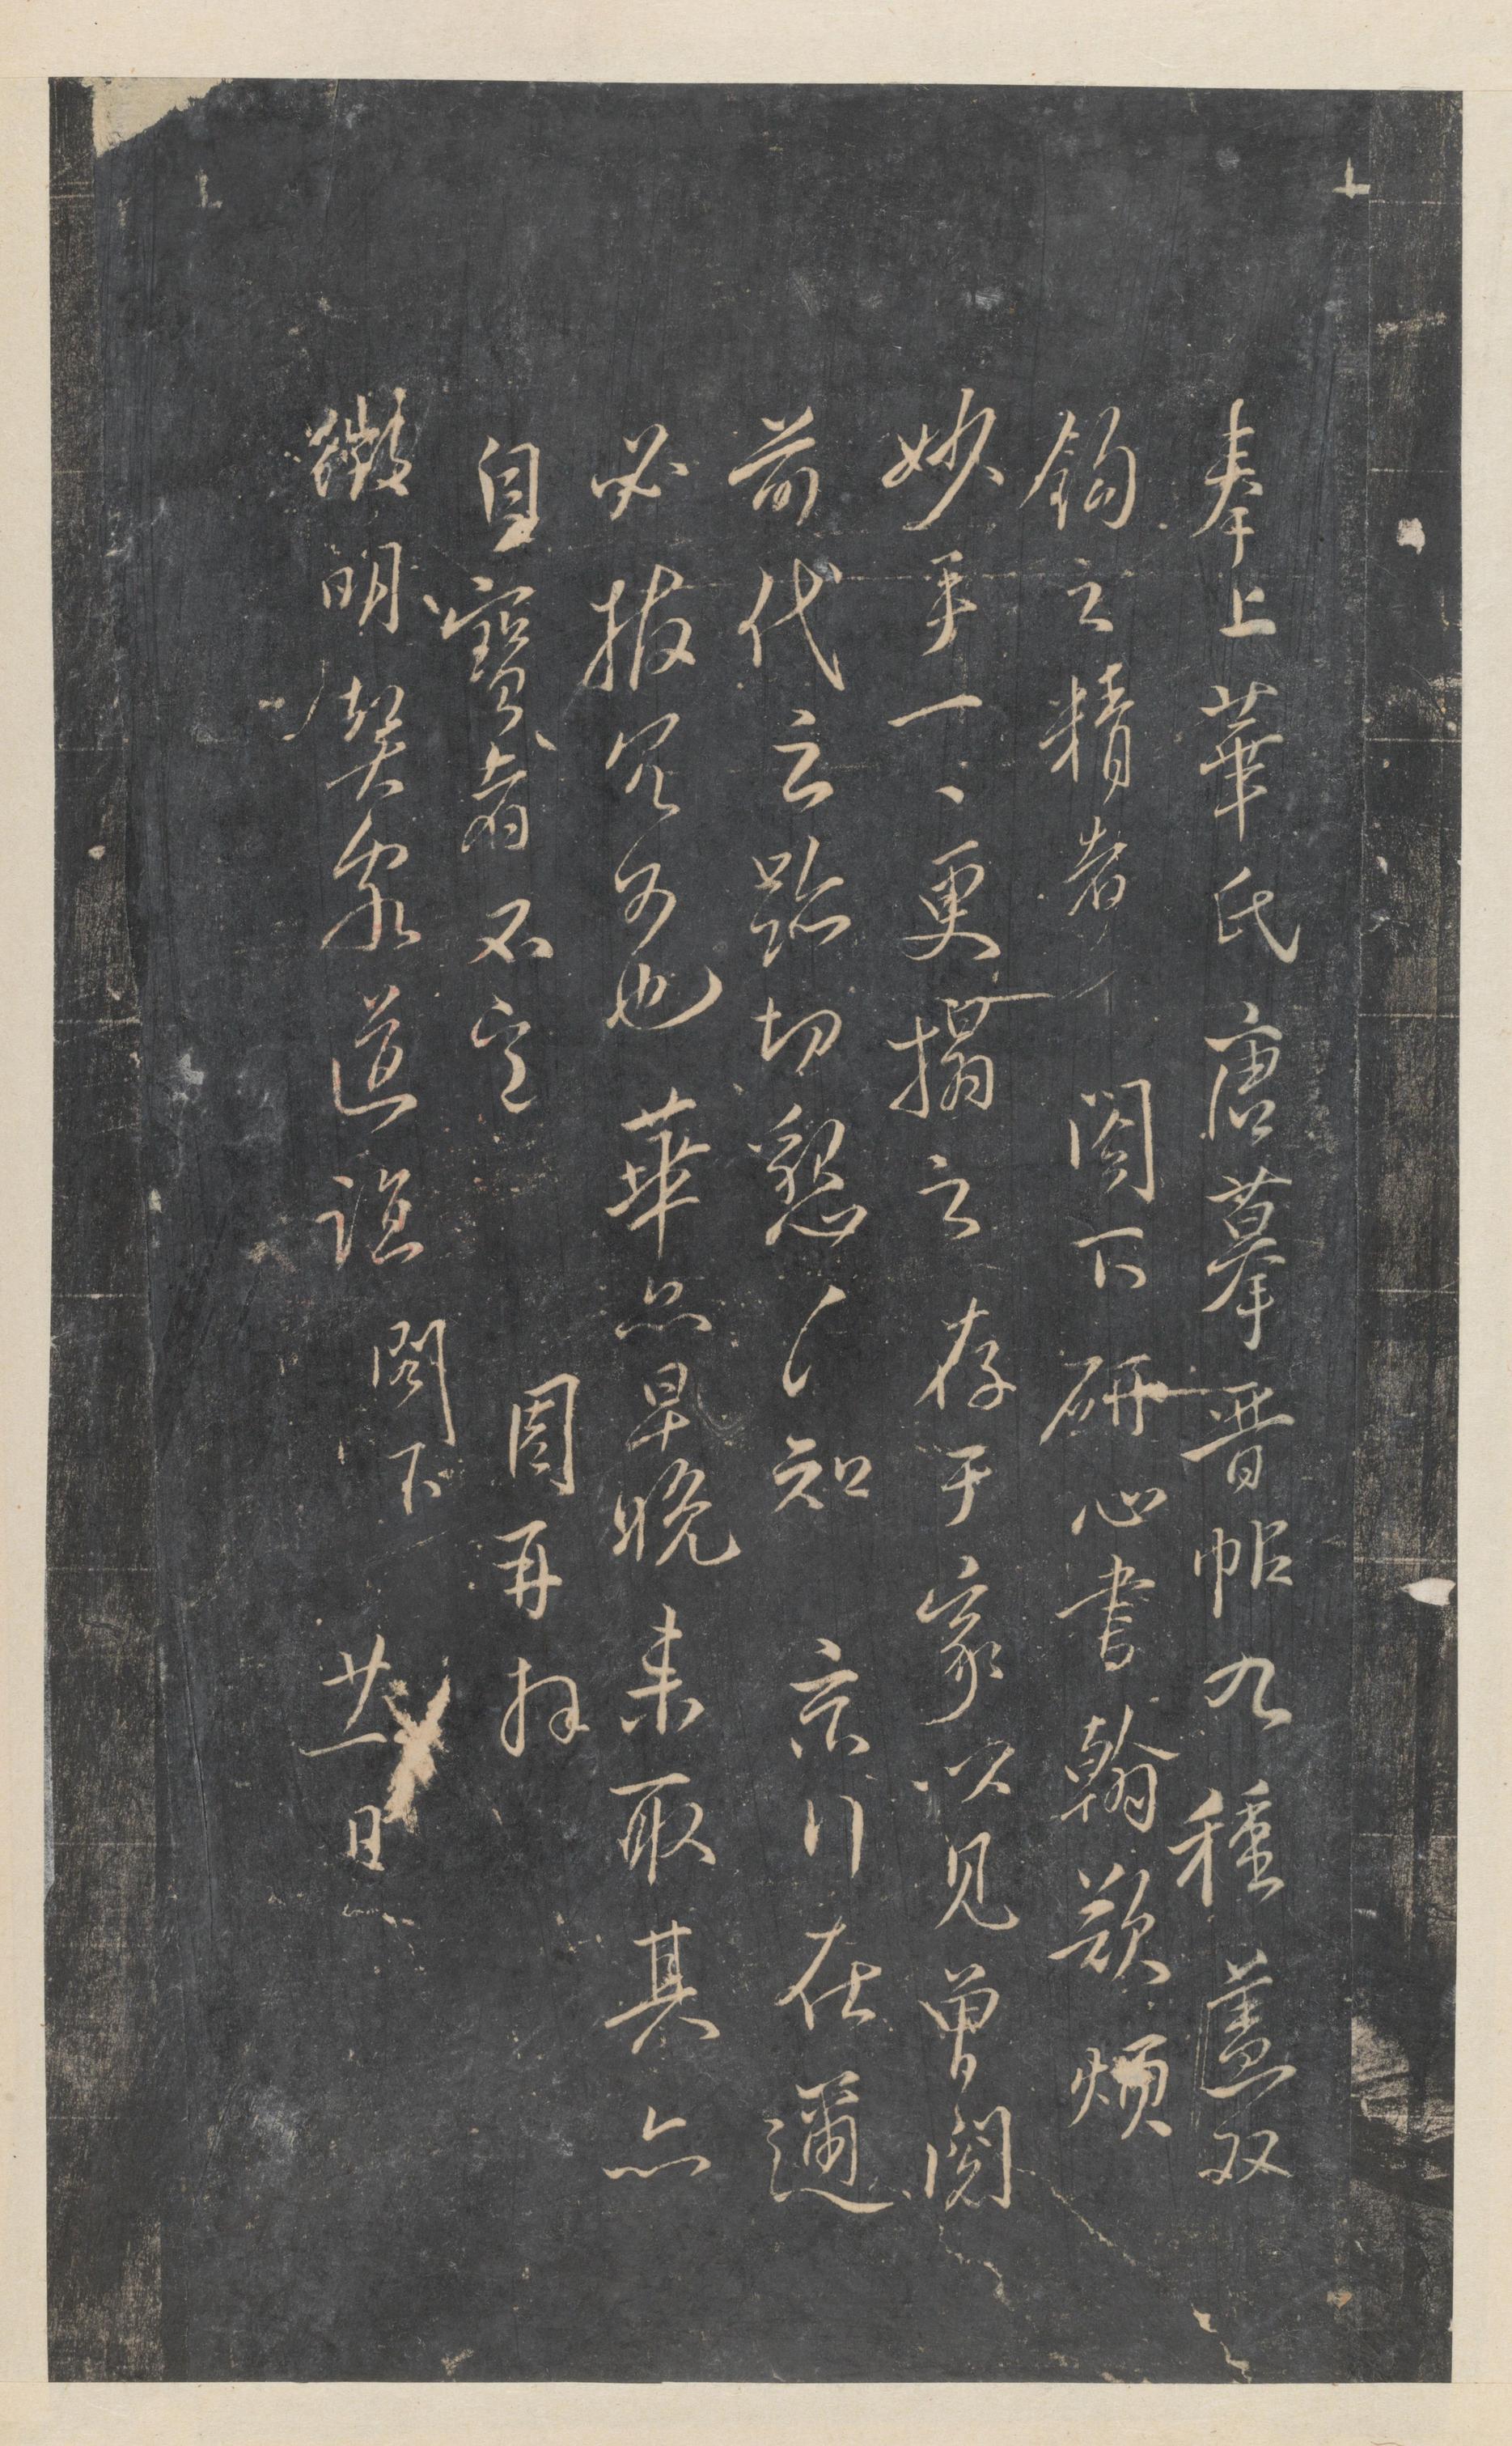 奉上華氏唐摹晉帖九種蓋双
鈎之精者　閣下研心書翰欲煩
妙手一〻更搨之存于家以見曾閱
前代之跡切懇〻知　京行在邇
必拔冗為也華亦早晚來取其亦
自寶者不宣　周再拜
徵明契家道誼閣下　廿一日